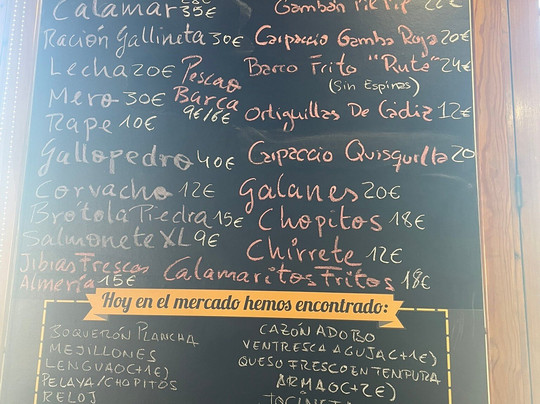 Calamar 35€
Ración Gallineta 30€
Lecha 20€
Pescao
Mero 30€
Barca
9€/16€
Rape 10€
Gallopedro 40€
Corvacho 12€
Brótola Piedra 15€
Salmonete XL 9€
Jibias Frescas
Almería 15€
Gambón Pil Pil 22€
Carpaccio Gamba Roja 20€
Barco Frito "Ruté" 24€
(Sin Espinas)
Ortiguillas De Cádiz 12€
Carpaccio Quisquilla 20
Galanes 20€
Chopitos 18€
Chirrete 12€
Calamaritos Fritos 18€
Hoy en el mercado hemos encontrado:
BOQUERÓN PLANCHA
MEJILLONES
LENGUAO(+1€)
PELAYA/CHOPITOS
RELOJ
CAZÓN ADOBO
VENTRESCA AGUJA(+1€)
QUESO FRESCO EN TEMPURA
ARMAO(+2€)